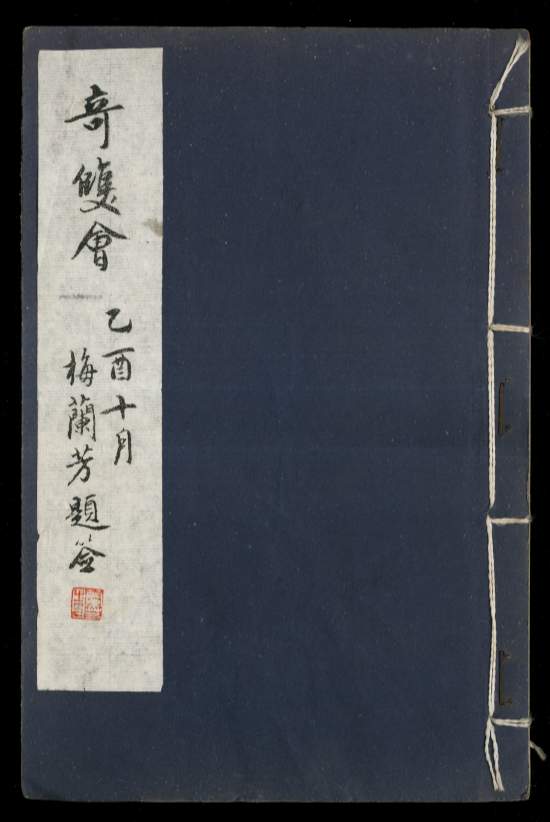 奇雙會
乙酉十月
梅蘭芳題簽